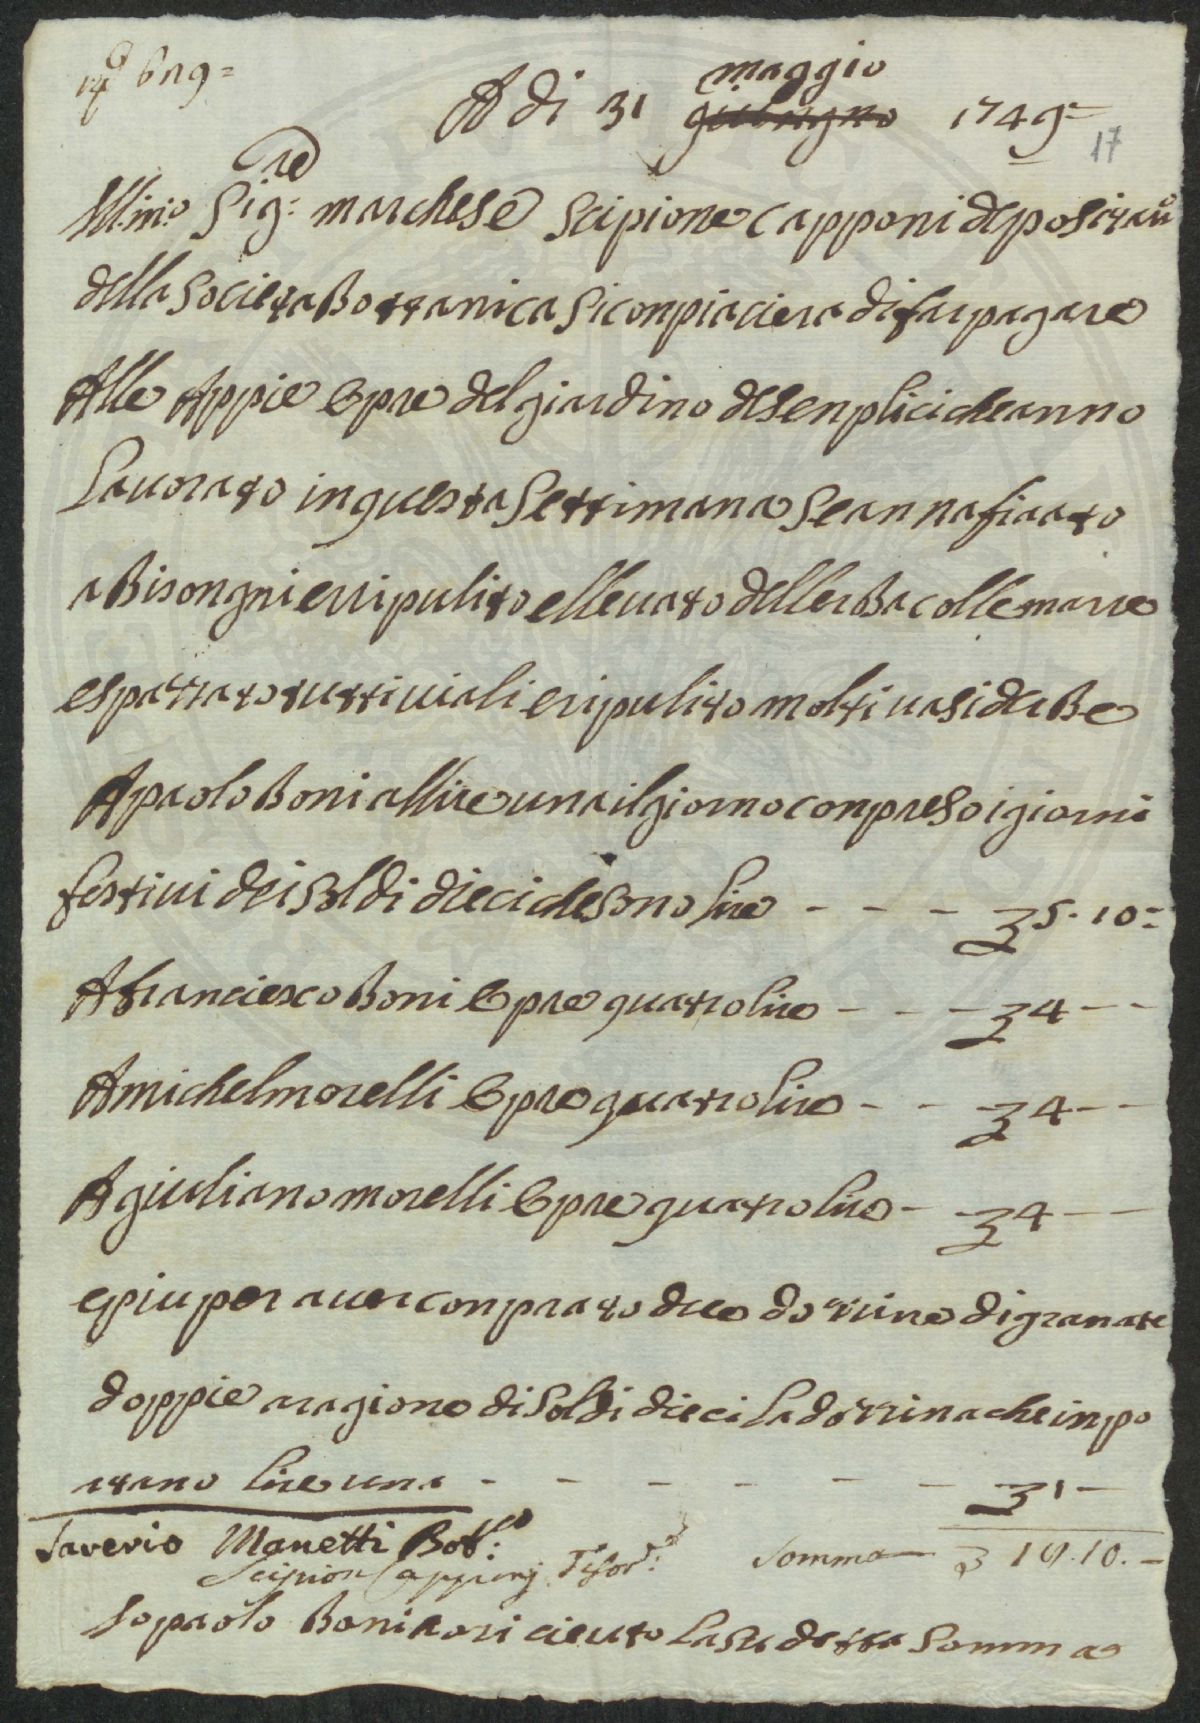 A di 31 maggio giungno 1749=
17
Ill.mo Sig:re marchese Scipione Capponi depositau
della Societa Bottanica Si conpiaciera di far pagare
Alle Appie Opre del giardino de Senplici che anno
Lavorato in questa Settimana Se annafiaato
a Bisongni e rripulito ellevato dellerBa colle marre
e spazzato tutti viali e ripulito molti vasi derBe
A paolo Boni allire una il giorno conpreso i giorni
festivi dei Soldi dieci che Sono lire - - - 5.10=
A franciesco Boni Opre quatro lire - - - 4 - -
A michel morelli Opre quatro lire - - 4 - -
A giuliano morelli Opre quatro lire - - 4 - -
e piu per aver conprato due dozzine di granate
doppie aragione di Soldi dieci La dozzina che inpo
rtano lire una - - - - - - 1 -
Saverio Manetti Bot:co
Scipion Capponi Tesor: Somma 18.10.-
Io paolo Boni aori cievto La Su detta Somma